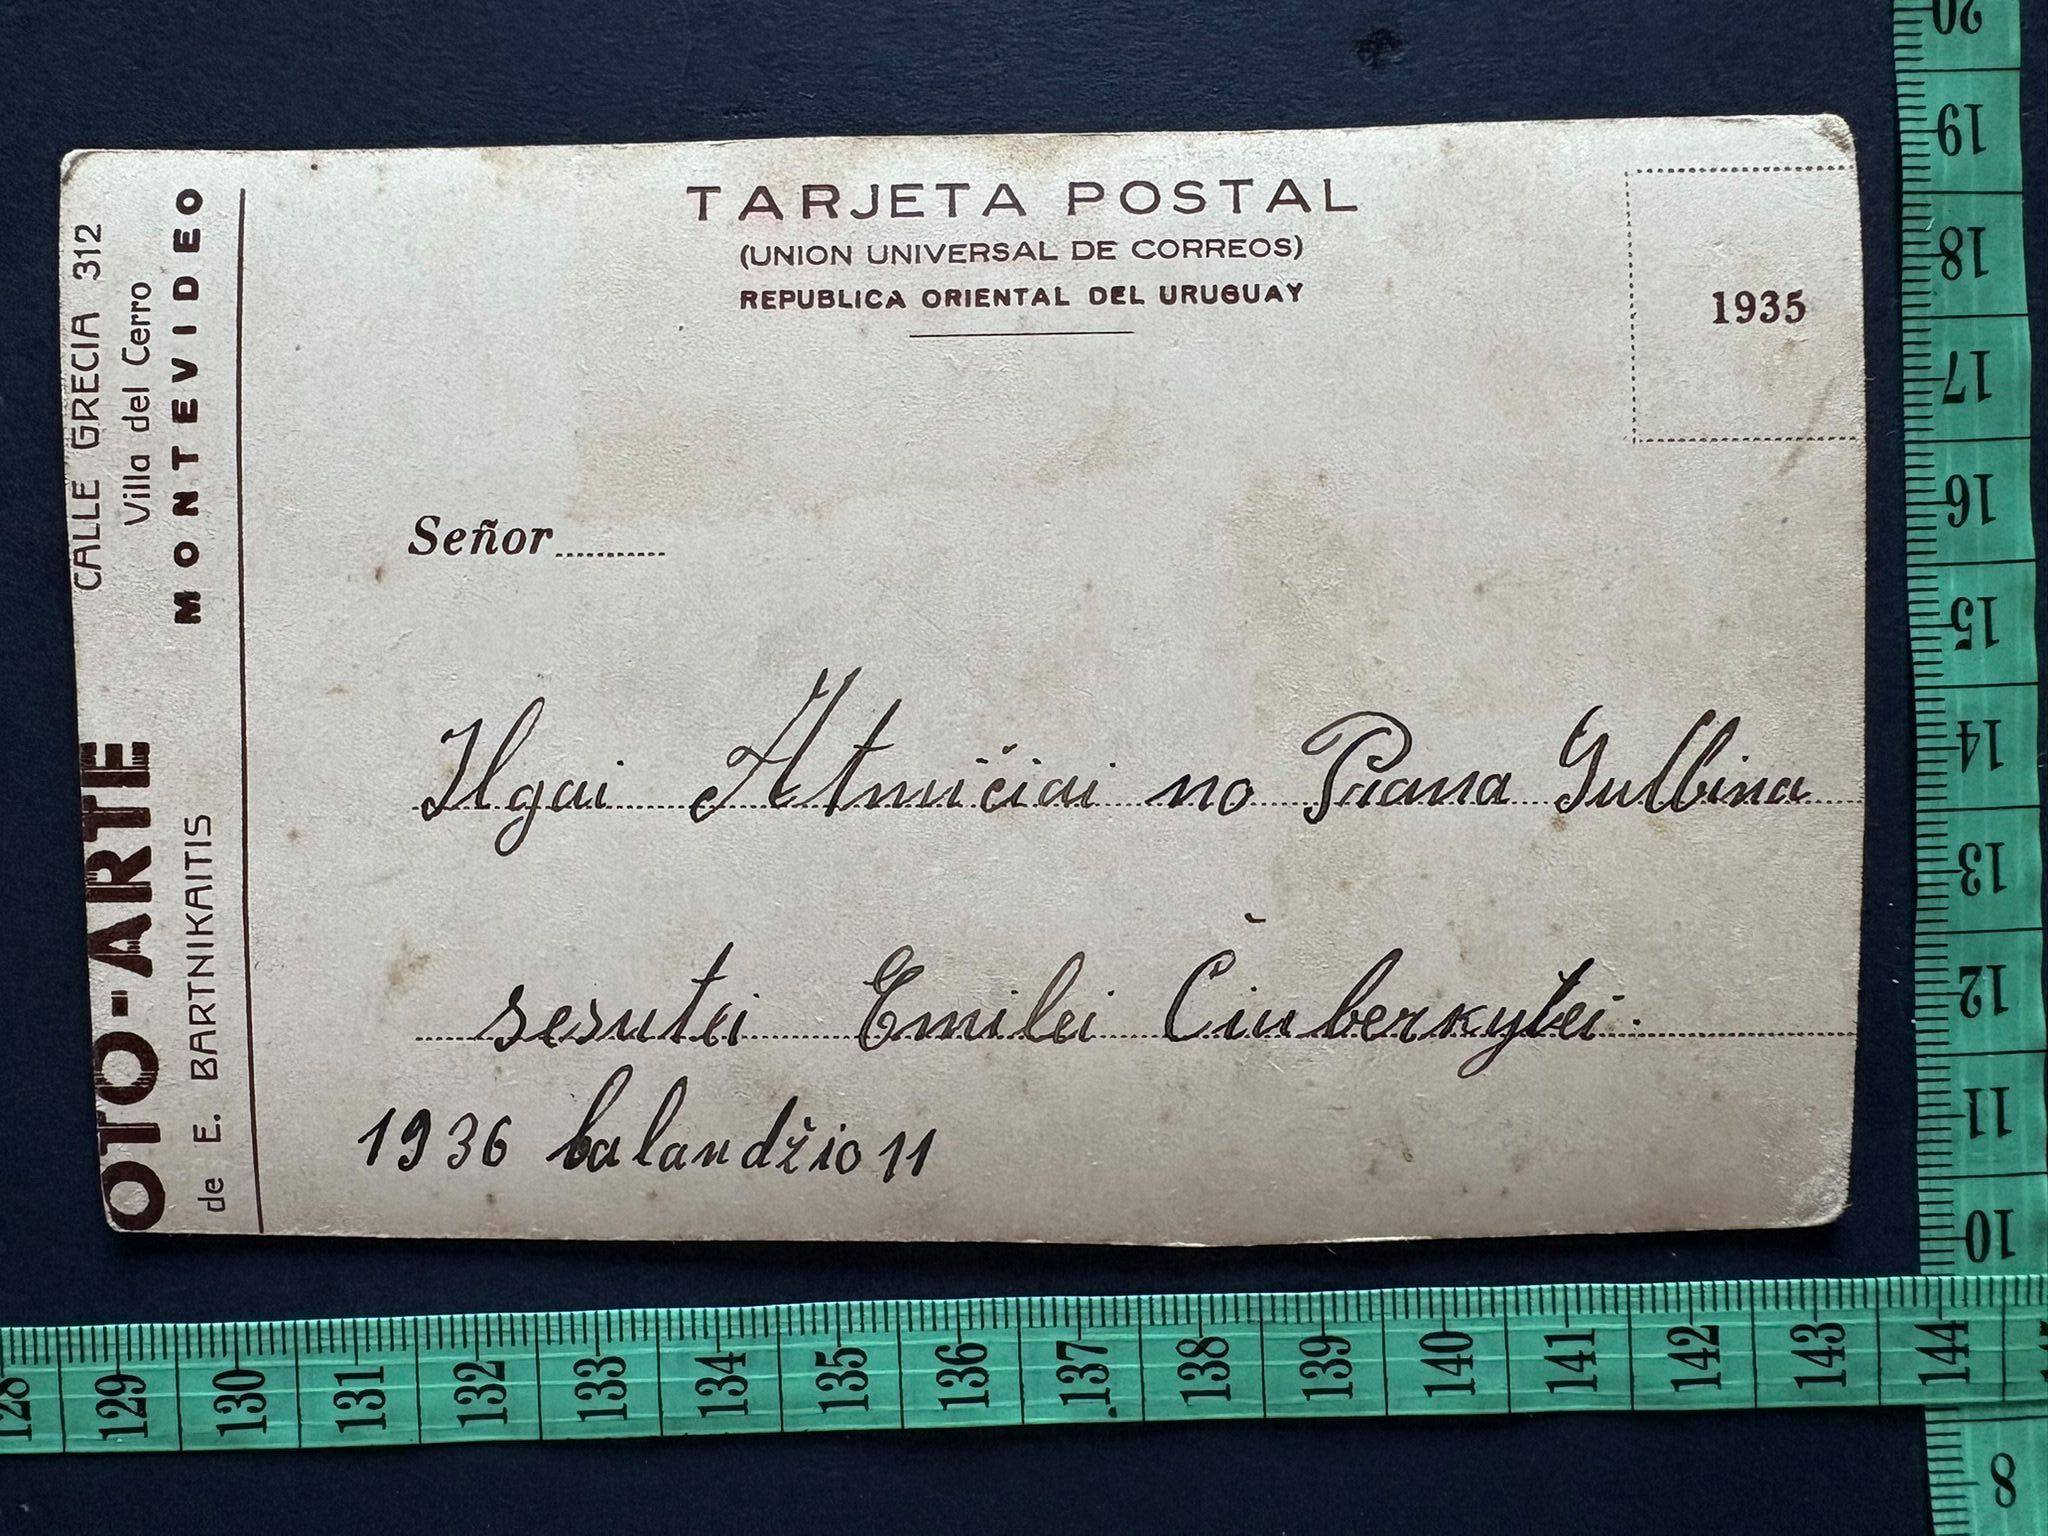 TARJETA POSTAL
(UNION UNIVERSAL DE CORREOS)
REPUBLICA ORIENTAL DEL URUGUAY
1935
Señor
Ilgai Atmičiai no Prana Gulbina
sesutei Emilei Čiuberkytei.
1936 balandžio 11
OTO-ARTE
de E. BARTNIKAITIS
CALLE GRECIA 312
Villa del Cerro
MONTEVIDEO
20
19
18
17
16
15
14
13
12
11
10
8
128 129 130 131 132 133 134 135 136 137 138 139 140 141 142 143 144